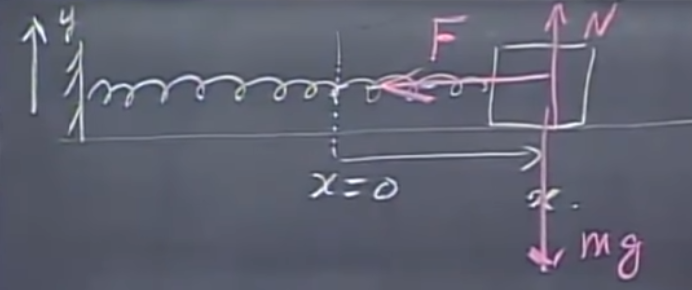 y
F
N
x=0
x.
mg